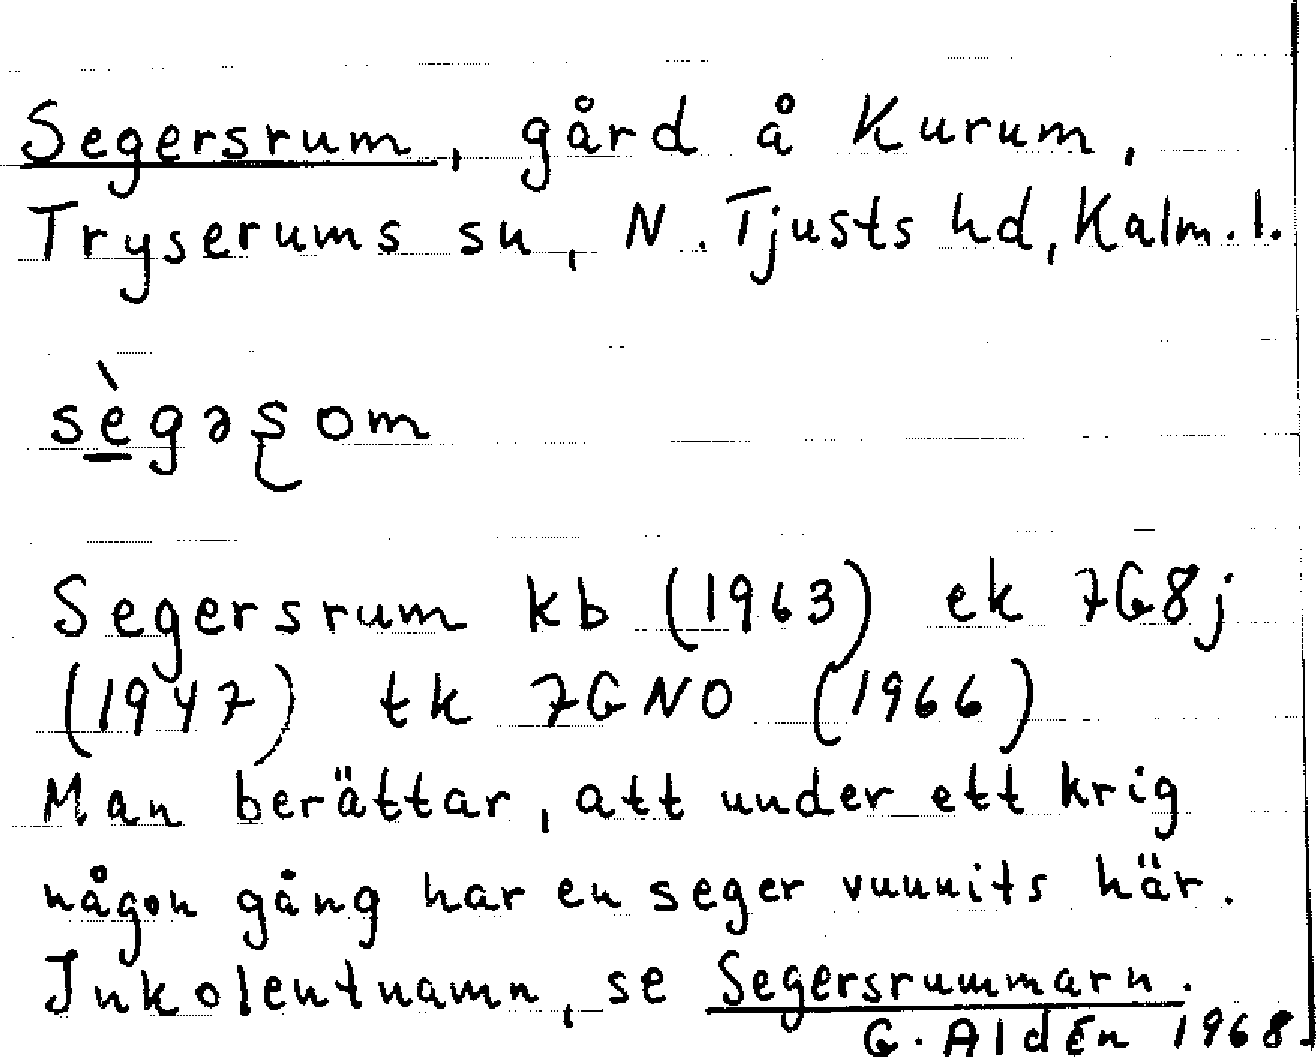 Segersrum, gård å Kurum,
Tryserums sn, N. Tjusts hd, Kalm. l.
sègəʂom
Segersrum kb (1963) ek 7G8j
(1947) tk 7GNO (1966)
Man berättar, att under ett krig
någon gång har en seger vunnits här.
Inkolentnamn, se Segersrummarn.
G. Aldén 1968.